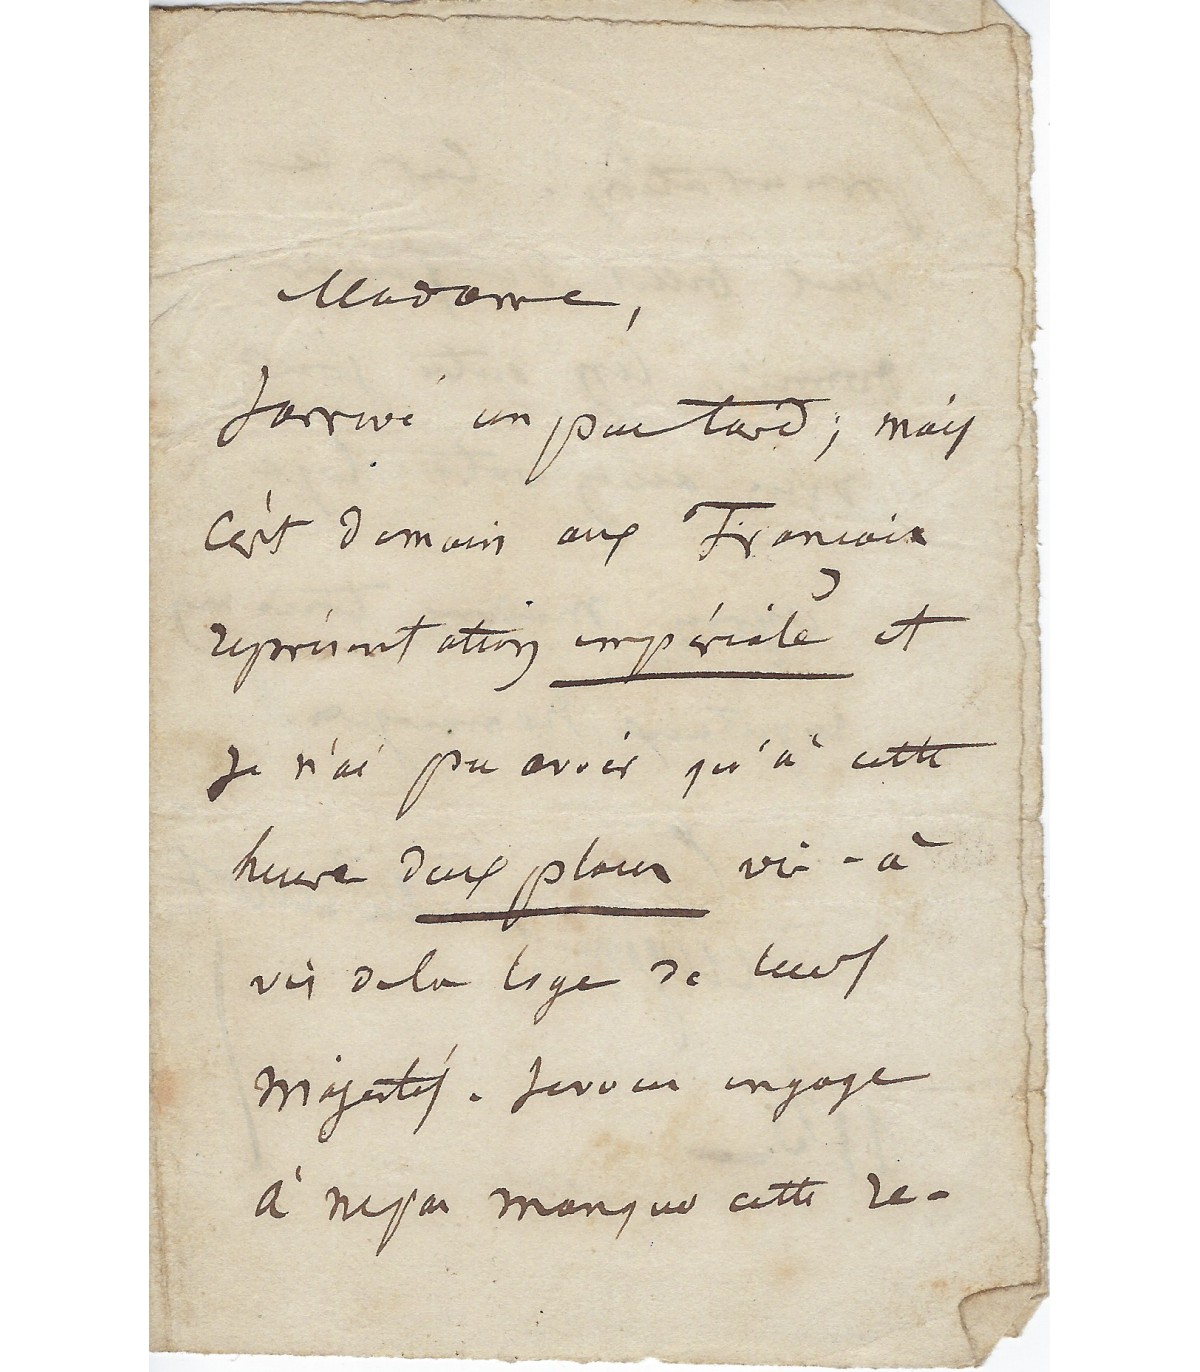 Madame,
J'arrive un peu tard; mais
c'est demain aux Français
représentation impériale et
je n'ai pu avoir qu'à cette
heure deux places vis-à
vis de la loge de leurs
Majestés. Je vous engage
à ne pas manquer cette re-